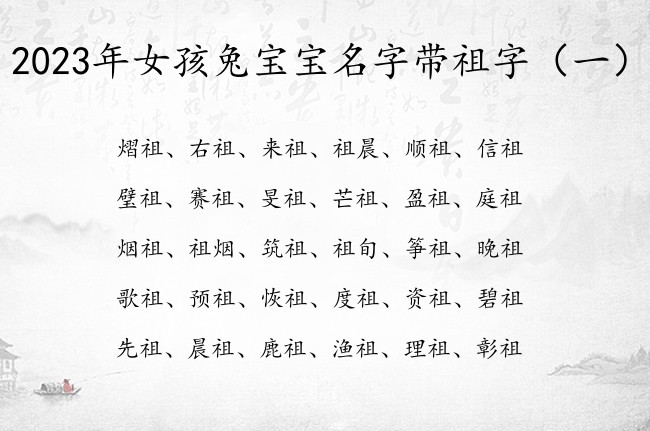 2023年女孩兔宝宝名字带祖字（一）
熠祖、右祖、来祖、祖晨、顺祖、信祖
璧祖、赛祖、旻祖、芒祖、盈祖、庭祖
烟祖、祖烟、筑祖、祖旬、筝祖、晚祖
歌祖、预祖、恢祖、度祖、资祖、碧祖
先祖、晨祖、鹿祖、渔祖、理祖、彰祖